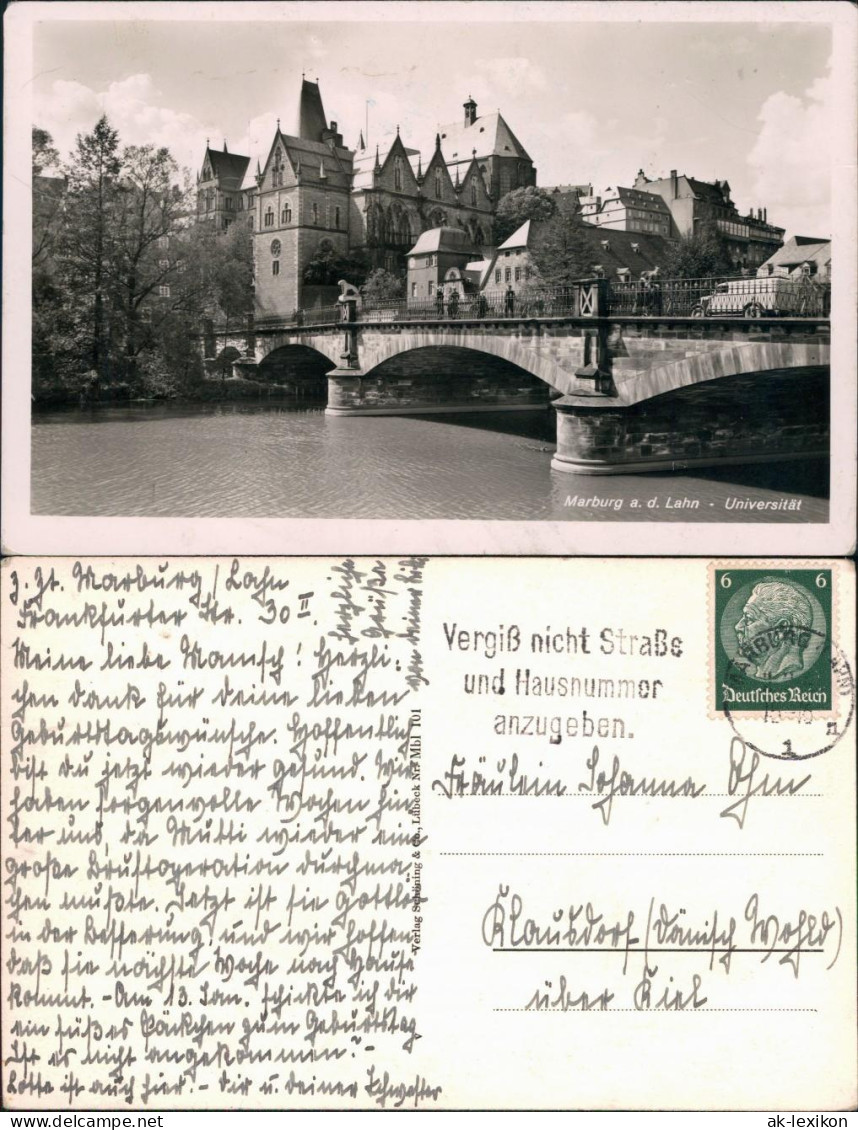 Marburg a. d. Lahn - Universität
z. Zt. Marburg/Lahn
Frankfurter Str. 30 II.
Meine liebe Mamsch! Herzli-
chen Dank für deine lieben
Geburtstagswünsche. Hoffentlich
bist du jetzt wieder gesund. Wir
haben sorgenvolle Wochen hin-
ter uns, da Mutti wieder eine
große Brustoperation durchma-
chen mußte. Jetzt ist sie gottlob
in der Besserung, und wir hoffen
daß sie nächste Woche nach Hause
kommt. - Am 13. Jan. schickte ich dir
ein süßes Päckchen zum Geburtstag
Ist es nicht angekommen? -
Lotte ist auch hier! - Dir u. deiner Schwester
herzliche
Grüße
von deiner
Verlag Schöning & Co., Lübeck Nr. Mbl 101
Vergiß nicht Straße
und Hausnummer
anzugeben.
6 6
Deutsches Reich
MARBURG (LAHN)
1 n
Fräulein Johanna Ohm
Klausdorf/(Dänisch Wohld)
über Kiel
www.ak-ansichtskarten.de
ak-lexikon